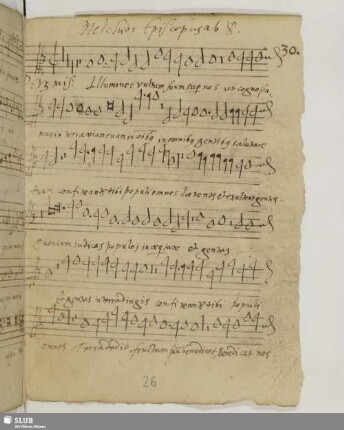 Melchior Episcopus ab 8.
30.
Illuminet vultum suum sup nos ut cognosca
mus in terra viam tuam in oībꝰ in omnibꝰ gentibꝰ salutare
tuum confiteantur tibi populi omnes
Quoniam iudicas populos in et gentes
et gentes in terra dirigis confiteantur tibi populi
omnes Terra dedit fructum suum benedicat nos
26
SLUB
Wir führen Wissen.